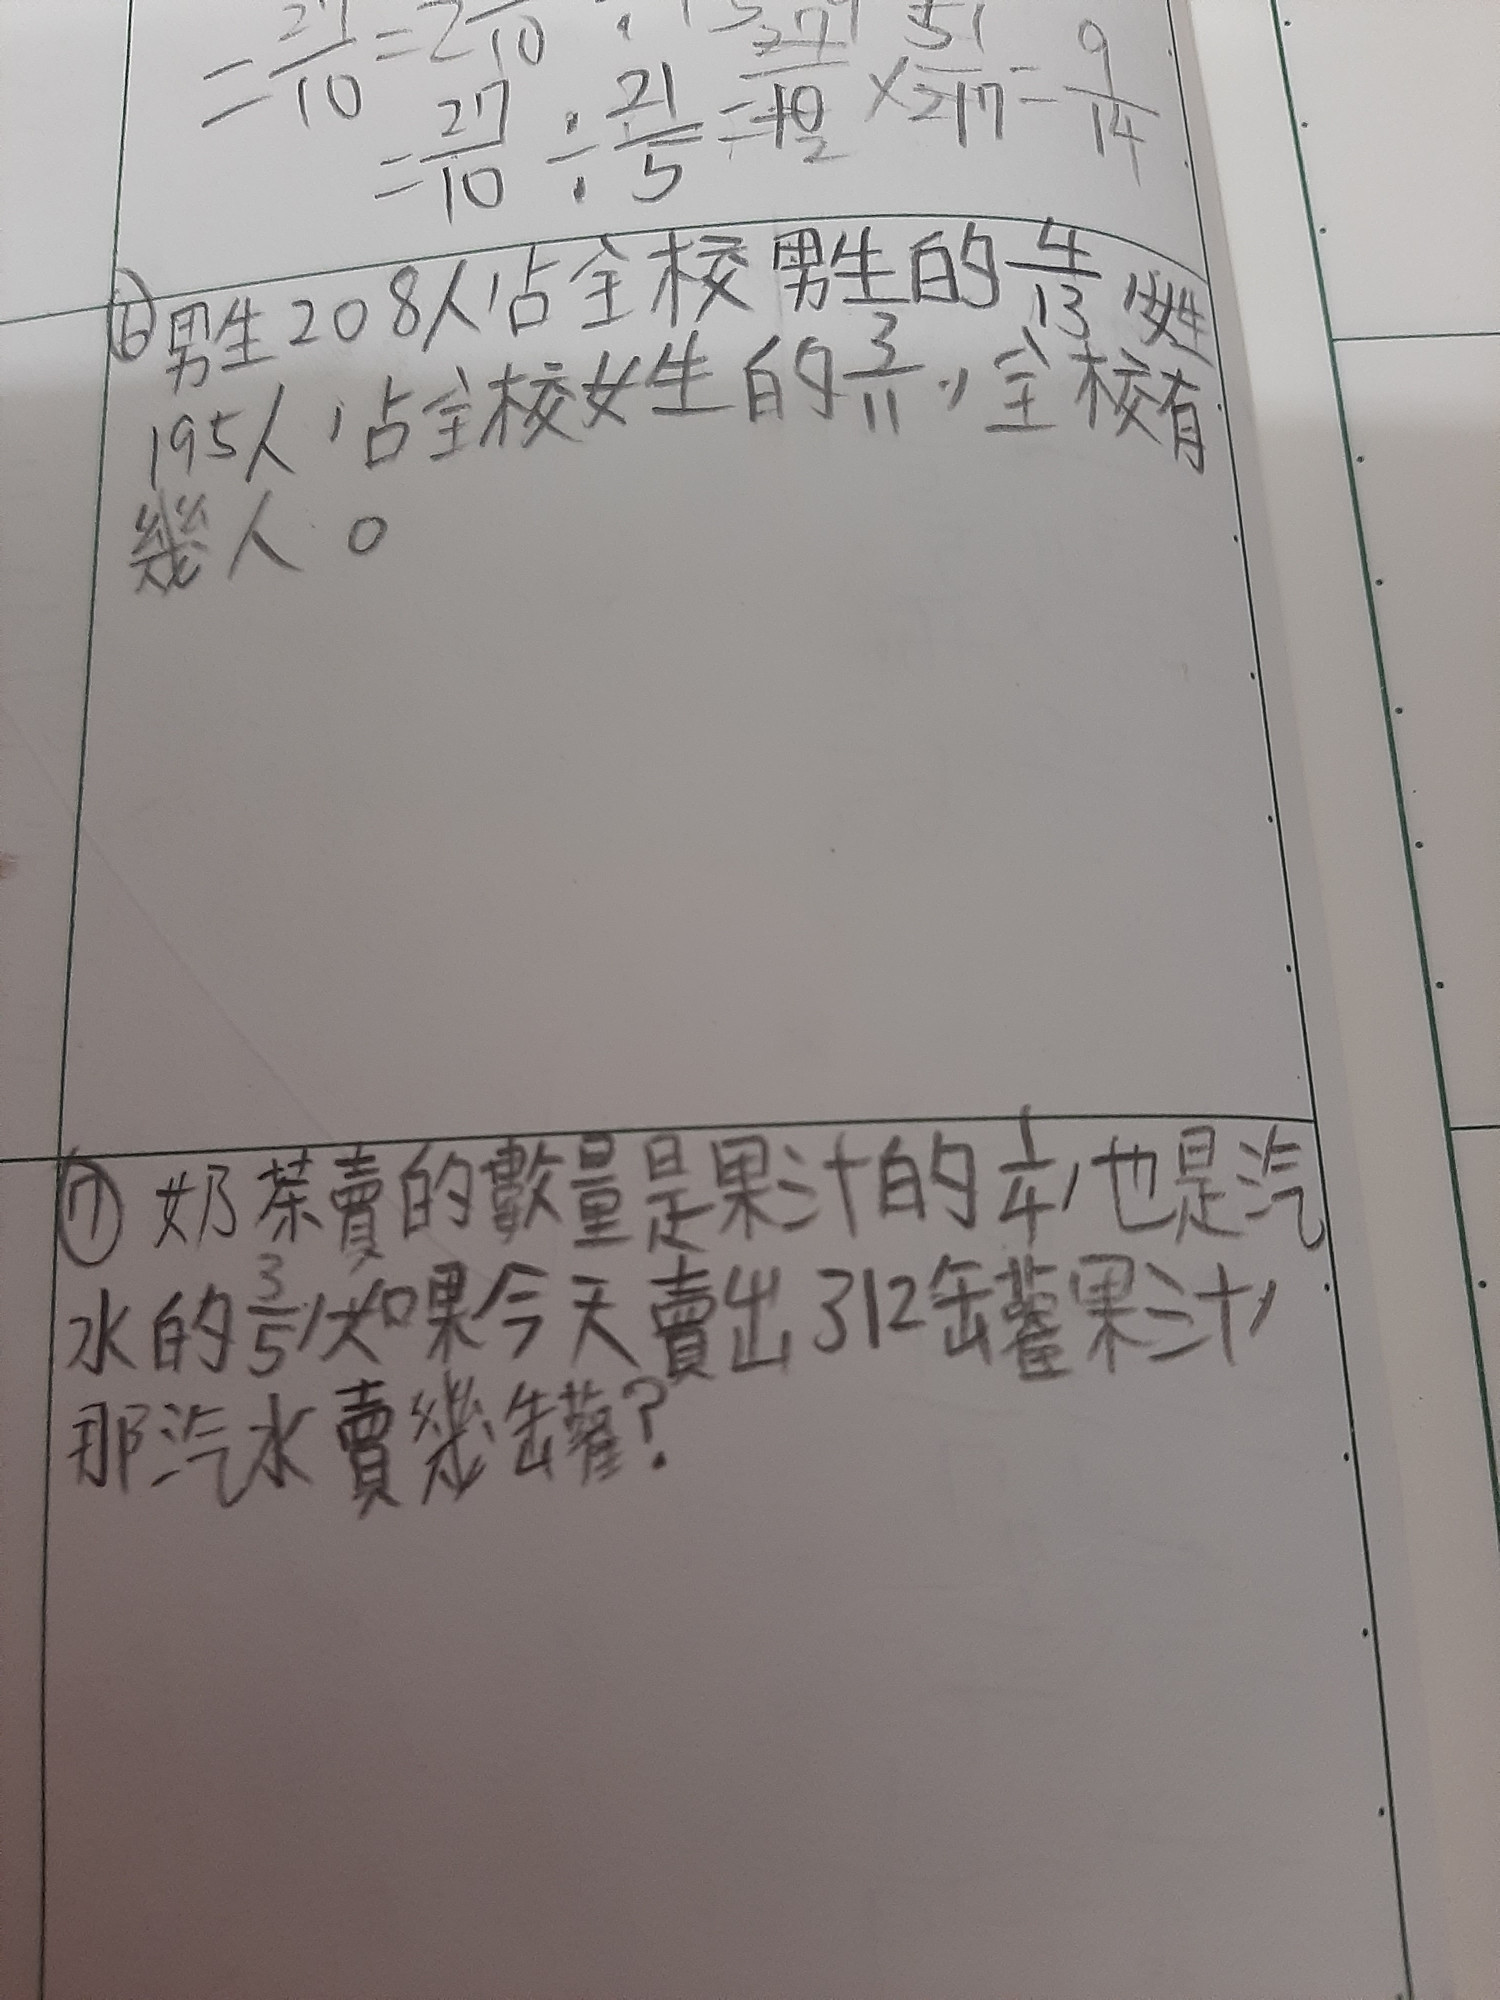 = 27/10 = 2 /10 ÷
= 27/10 ÷ 21/5 = 27/10 2 × 51/217 = 9/14
⑥男生208人,佔全校男生的4/13,女生
195人,佔全校女生的3/11,,全校有
幾人。
⑦奶茶賣的數量是果汁的1/4,也是汽
水的3/5,如果今天賣出312缶罐果汁,
那汽水賣幾罐?